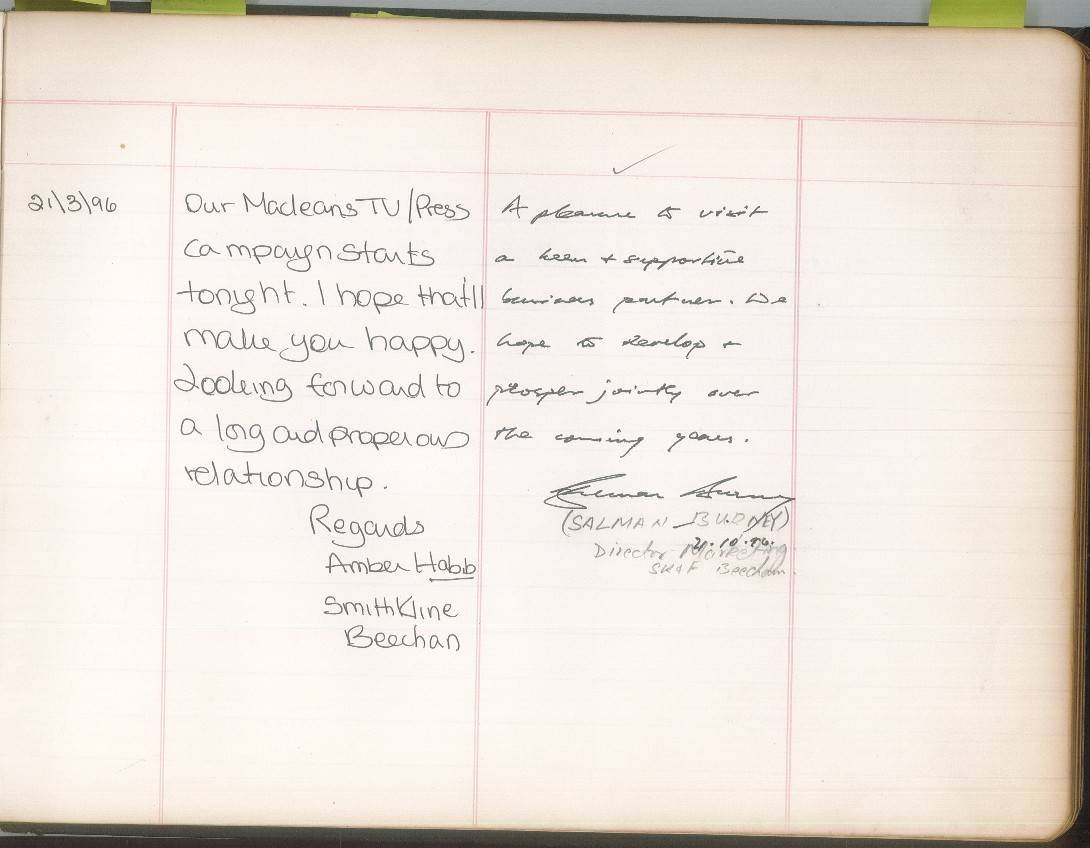 21/3/96
Our Macleans TV/Press
campaign starts
tonight. I hope that'll
make you happy.
Looking forward to
a long and properous
relationship.
Regards
Amber Habib
SmithKline
Beechan
A pleasure to visit
a keen + supportive
business partner. We
hope to develop +
prosper jointly over
the coming years.
(SALMAN BURNEY)
21.10.96.
Director Marketing
SK&F Beecham.